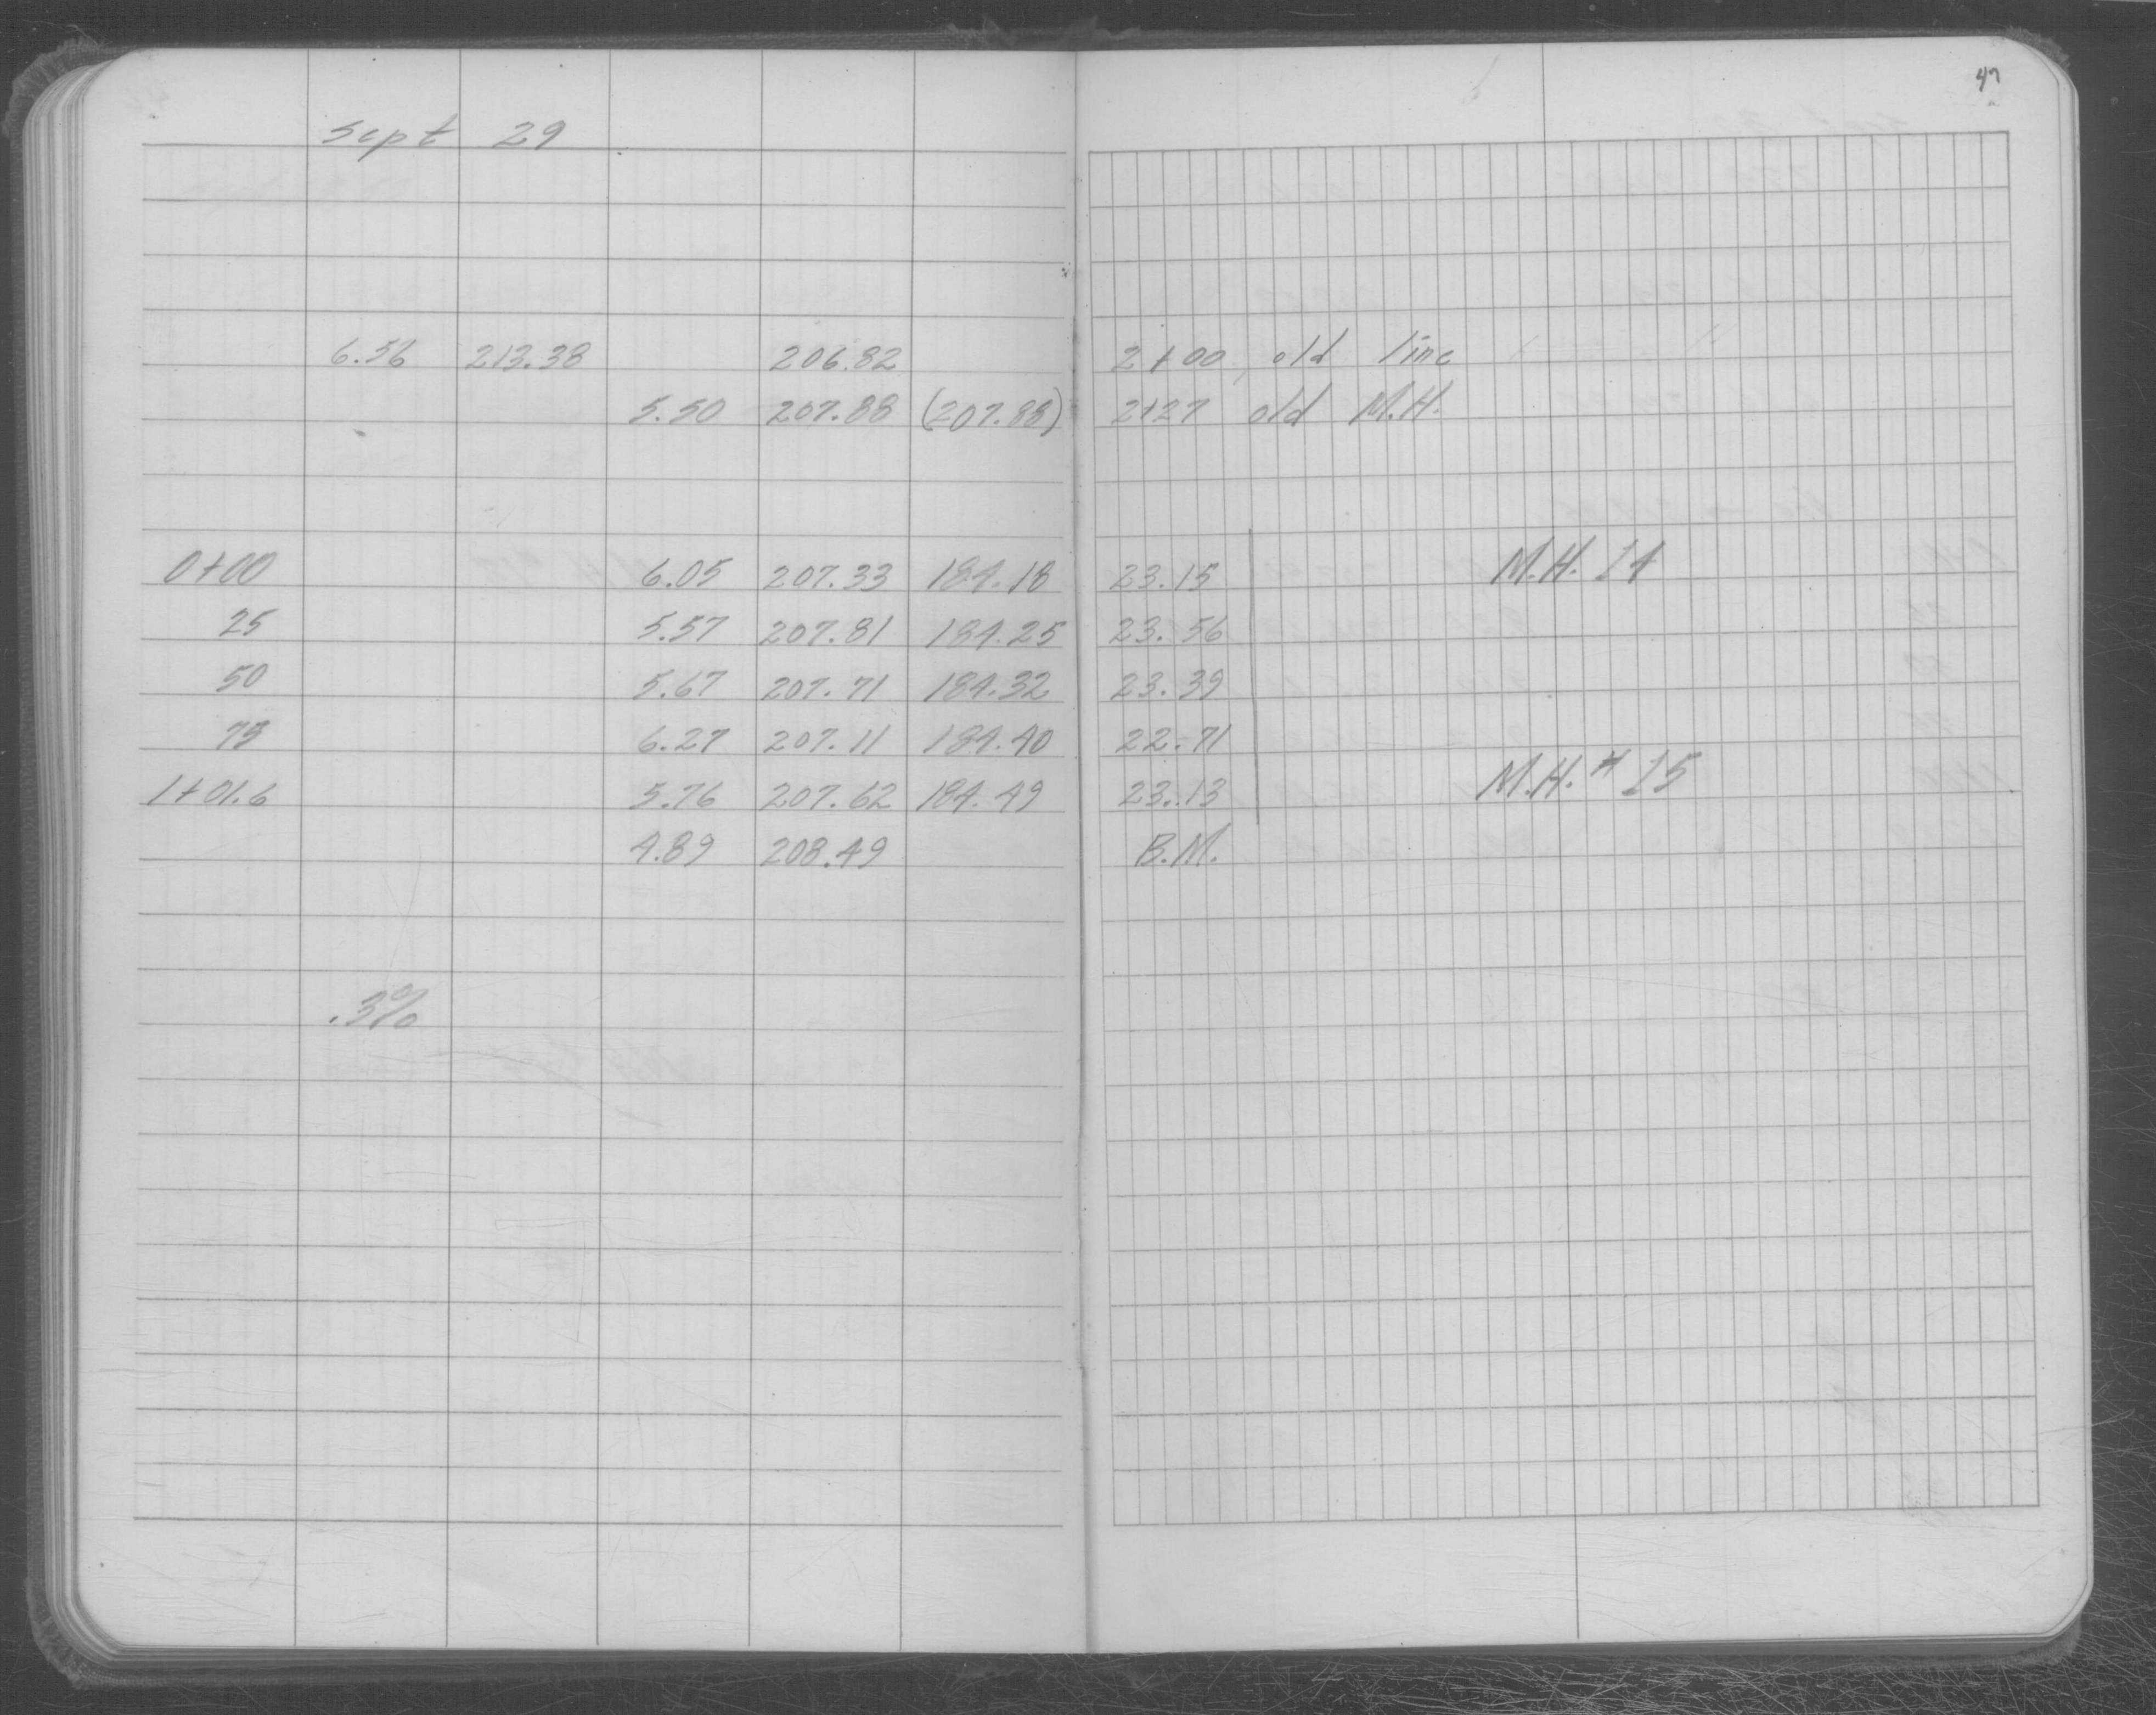 47
Sept 29
6.56 213.38 206.82 2+00, old line
5.50 207.88 (207.88) 2+27 old M.H.
0+00 6.05 207.33 184.18 23.15 M.H. 14
25 5.57 207.81 184.25 23.56
50 5.67 207.71 184.32 23.39
75 6.27 207.11 184.40 22.71
1+01.6 5.76 207.62 184.49 23.13 M.H. # 15
4.89 208.49 B.M.
.3%